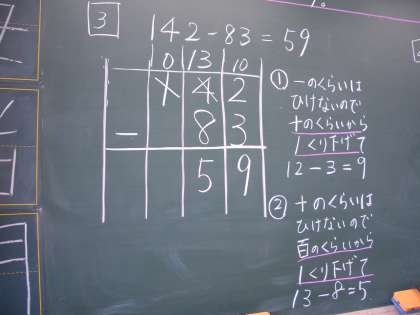 3
142-83=59
0 13 10
1 4 2
- 8 3
5 9
① 一のくらいは
ひけないので
十のくらいから
1くり下げて
12-3=9
② 十のくらいは
ひけないので
百のくらいから
1くり下げて
13-8=5